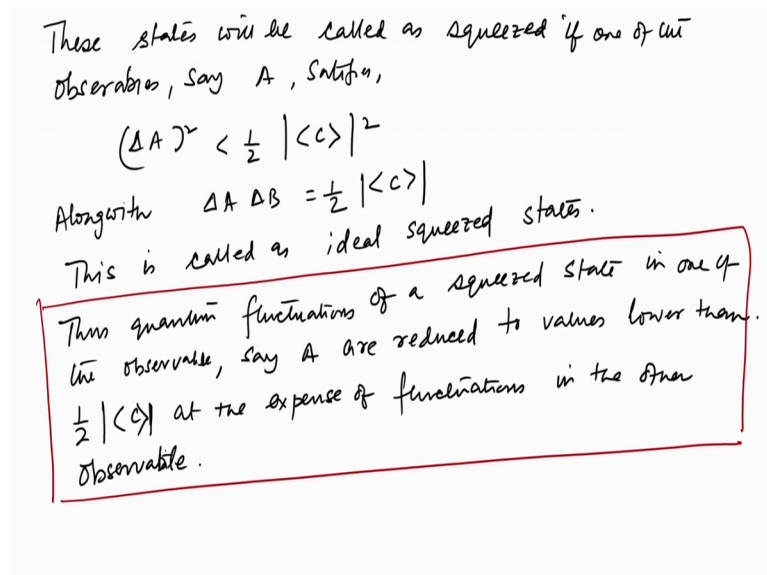 These states will be called as squeezed if one of the
observables, say A, satisfies,
(ΔA)² < 1/2 |<C>|²
Alongwith ΔA ΔB = 1/2 |<C>|
This is called as ideal squeezed states.
Thus quantum fluctuations of a squeezed state in one of
the observable, say A are reduced to values lower than.
1/2 |<C>| at the expense of fluctuations in the other
observable.